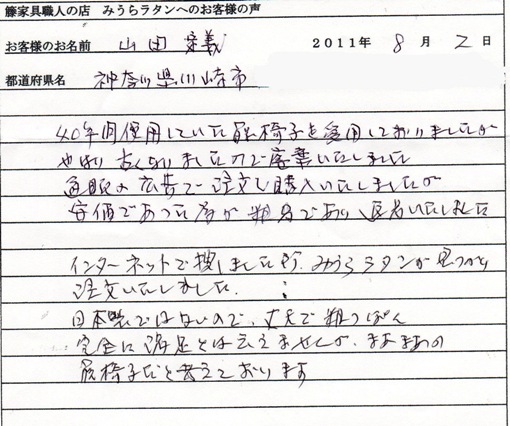 籐家具職人の店　みうらラタンへのお客様の声
お客様のお名前　山田　義
2011年　8　月　2　日
都道府県名　神奈川県川崎市
40年間使用していた座椅子を愛用しておりましたが
やはり古くなりましたので廃棄いたしました
通販の広告で注文し購入いたしましたが
安価であった為か粗品であり返品いたしました
インターネットで捜しました所、みうらラタンが見つかり
注文いたしました。
日本製ではないので、丈夫で粗っぽく
完全に満足とは云えませんが、まあまあの
座椅子だと考えております